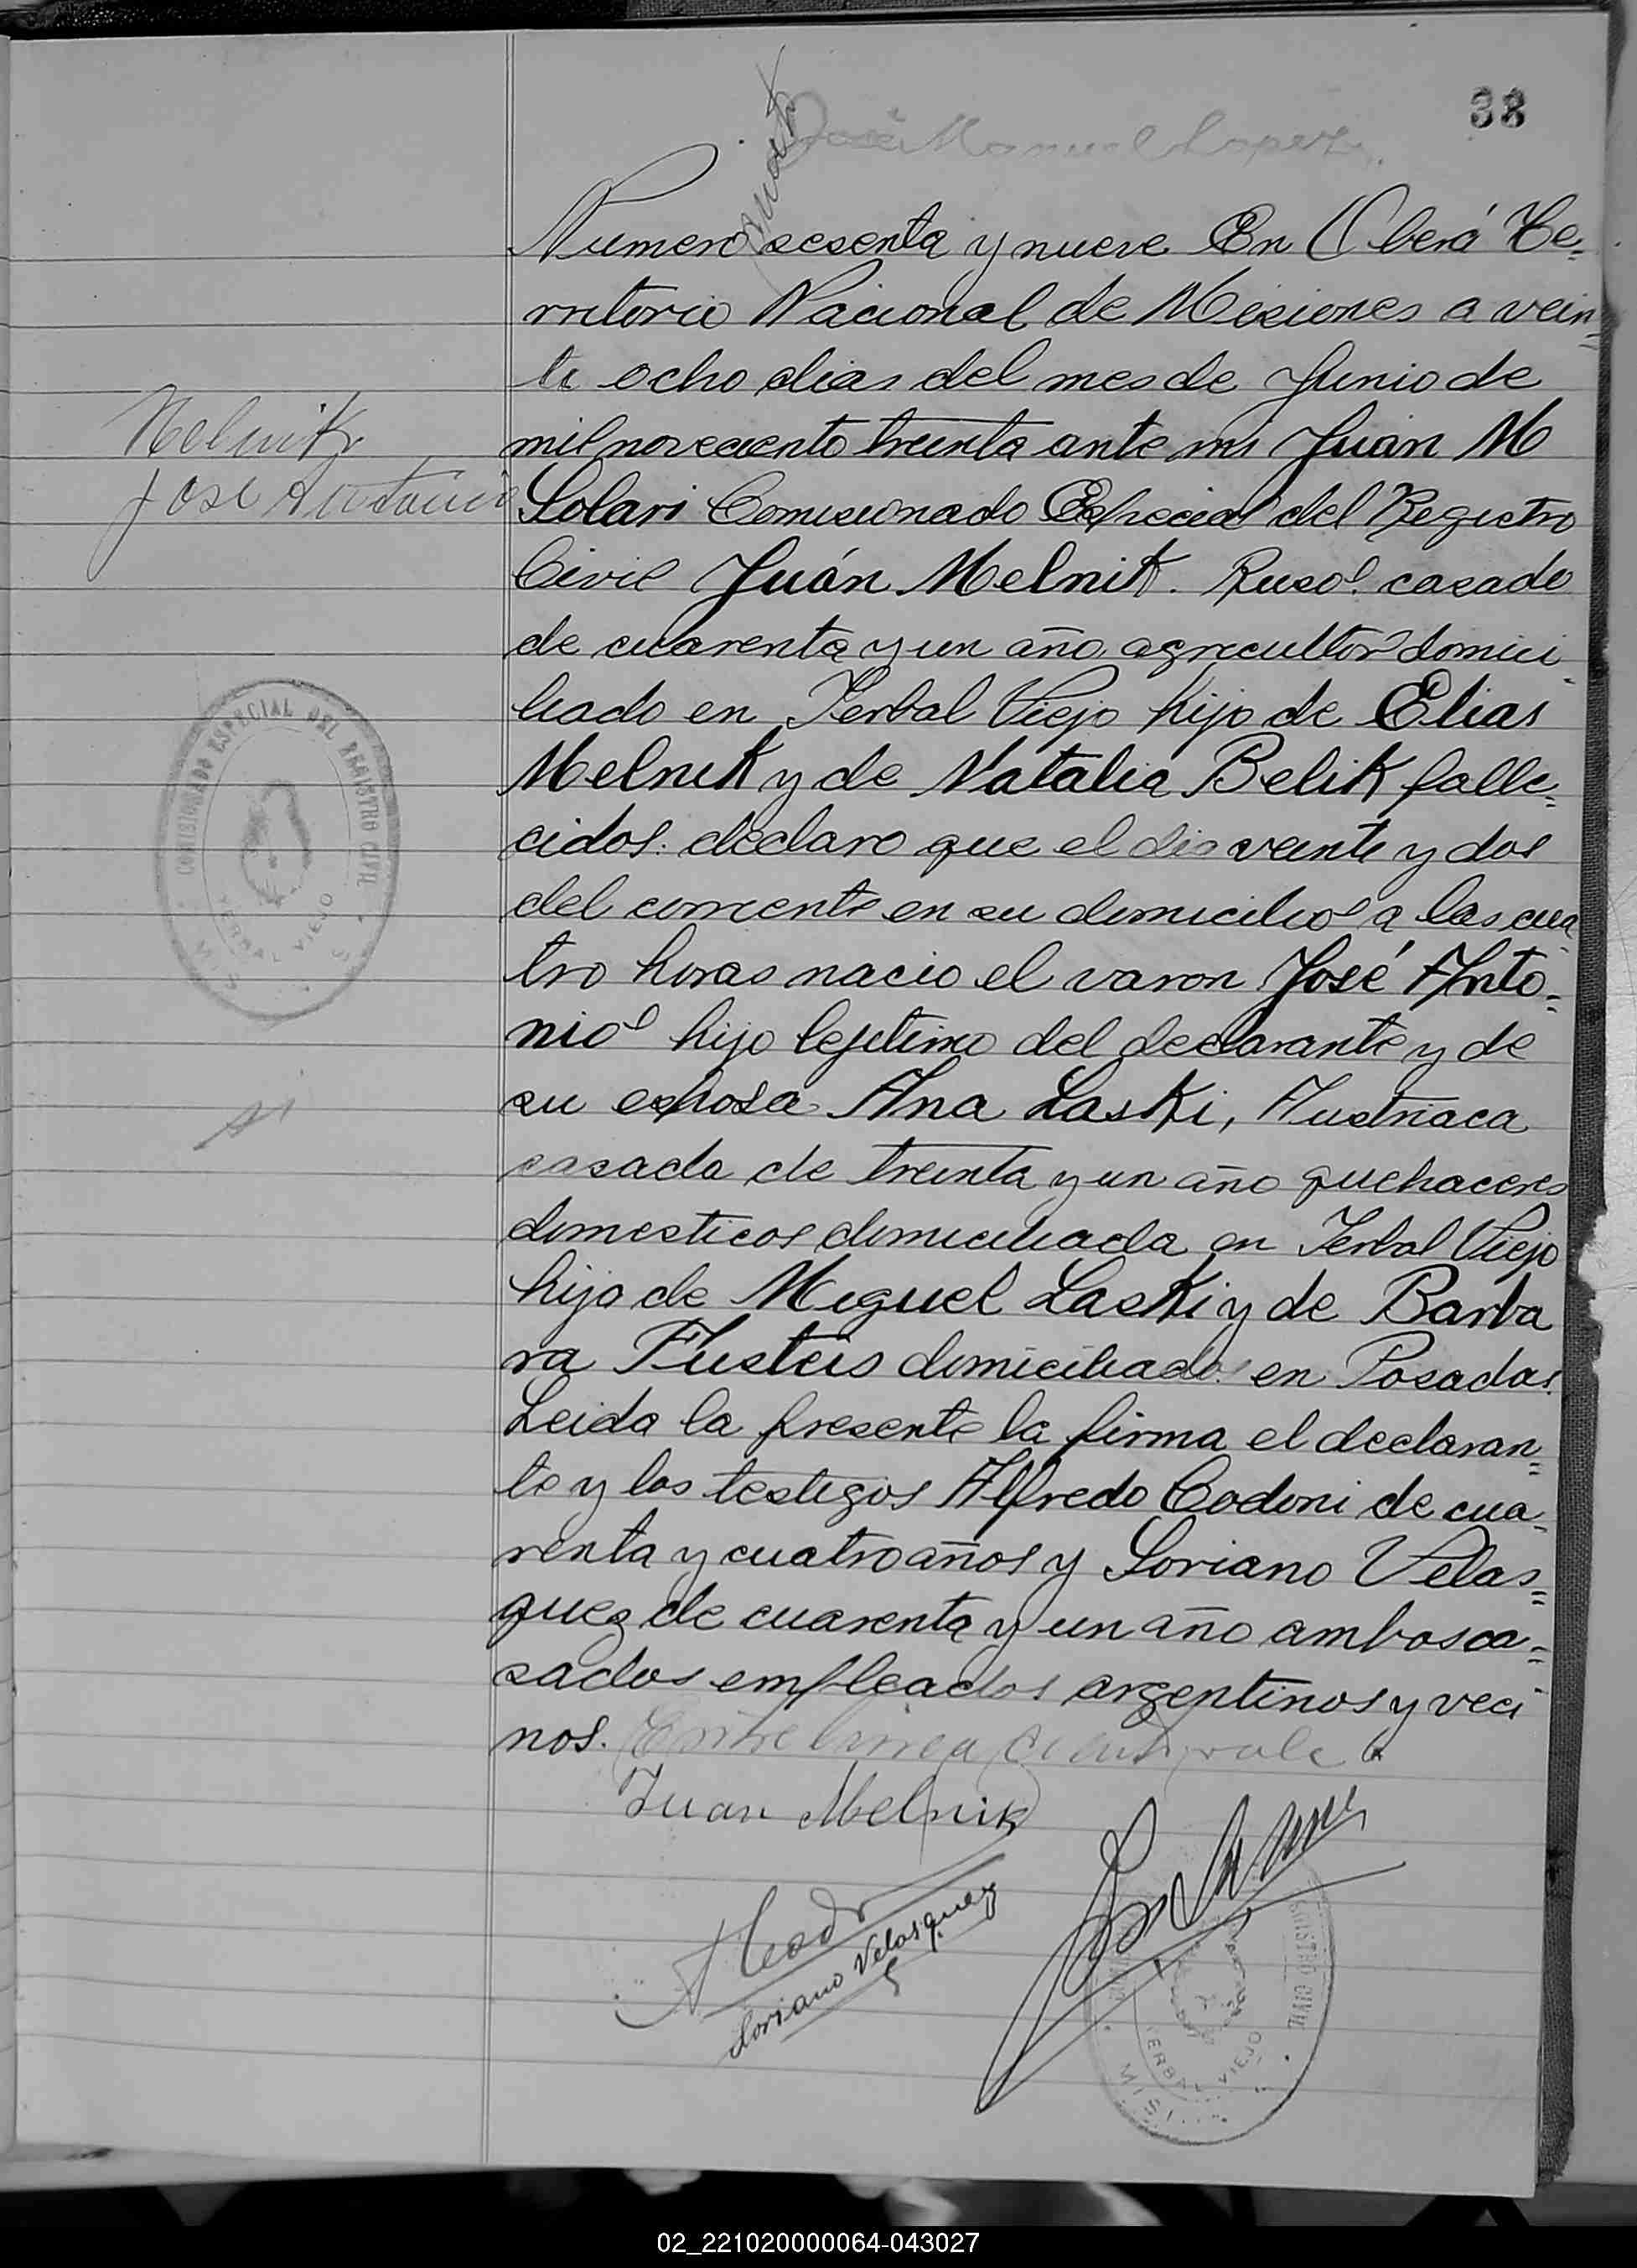 38
José Manuel Lopez
Numero sesenta y nueve En Oberá Te-
rritorio Nacional de Misiones a vein-
ti ocho dias del mes de Junio de
mil noveciento treinta ante mi Juan M
Solari Comisionado Especial del Registro
Civil Juán Melnik. Ruso casado
de cuarenta y un año agricultor domici-
liado en Yerbal Viejo hijo de Elias
Melnik y de Natalia Belik falle-
cidos. declaro que el dia veinte y dos
del corriente en su domicilio a las cua-
tro horas nacio el varon José Anto-
nio hijo lejitimo del declarante y de
su esposa Ana Laski, Austriaca
casada de treinta y un año quehaceres
domesticos domiciliada en Yerbal Viejo
hija de Miguel Laski y de Barba
ra Fusteis domiciliados en Posadas.
Leida la presente la firma el declaran-
te y los testigos Alfredo Codoni de cua-
renta y cuatro años y Loriano Velas-
quez de cuarenta y un año ambos ca-
sados empleados argentinos y veci-
nos. Entre linea vale
Juan Melnik
Loriano Velasquez
Melnik
José Antonio
COMISIONADO ESPECIAL DEL REGISTRO CIVIL
YERBAL VIEJO
REGISTRO CIVIL
YERBAL VIEJO
02_221020000064-043027